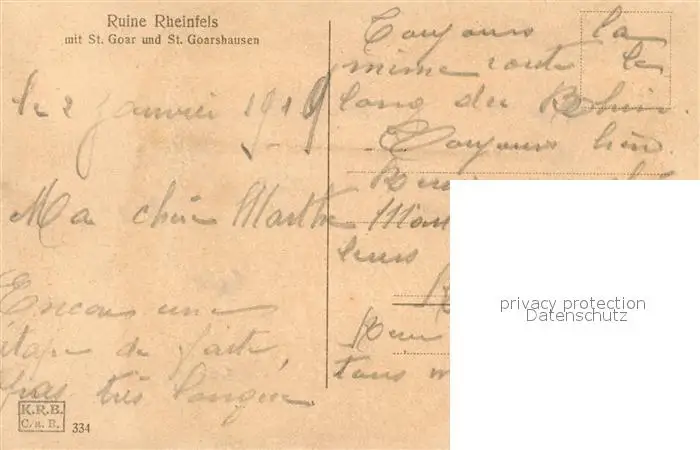 Ruine Rheinfels
mit St. Goar und St. Goarshausen
le 2 janvier 1919
Ma chère Marthe
Encore une
étape de faite,
pas très longue
Toujours la
même route le
long du Rhin
Toujours bien
leurs
tous
privacy protection
Datenschutz
K.R.B.
C. a. B.
334